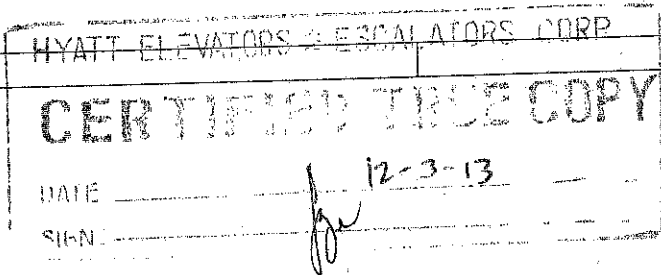 HYATT ELEVATORS & ESCALATORS CORP
CERTIFIED TRUE COPY
DATE 12-3-13
SIGN